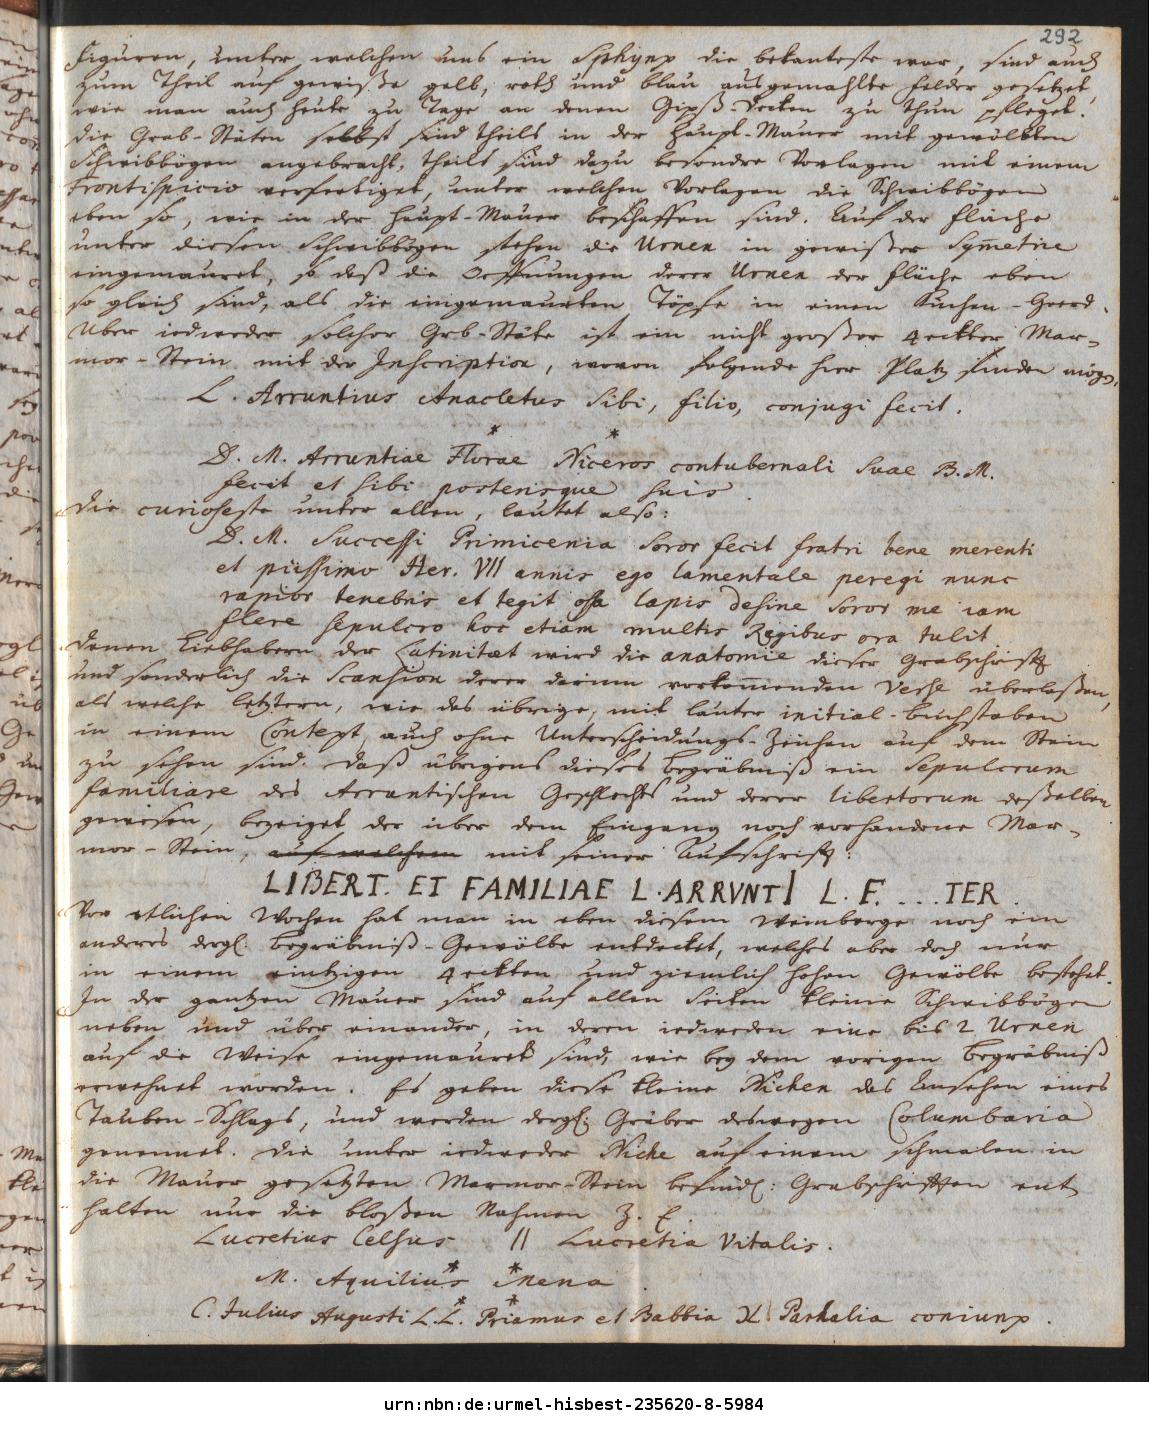 292
Figuren, unter welchen uns ein Sphynx die bekanteste war, sind auch
zum Theil auf gewiße gelb, roth und blau ausgemahlte Felder gesetzet,
wie man auch heute zu Tage an denen Gipß-Decken zu thun pfleget.
die Grab-Stäten selbst sind theils in der Haupt-Mauer mit gewölbten
Schwibbögen angebracht, theils sind dazu besondre Vorlagen mit einem
Frontispicio verfertiget, unter welchen Vorlagen die Schwibbögen
eben so, wie in der Haupt-Mauer beschaffen sind. Auf der Fläche
unter diesen Schwibbögen stehen die Urnen in gewißer Symetrie
eingemauret, so daß die Oeffnungen derer Urnen der Fläche eben
so gleich sind, als die eingemaurten Töpfe in einen Kuchen-Heerd.
Uber iedweder solcher Grb-Stäte ist ein nicht großer 4eckter Mar-
mor-Stein mit der Inscription, wovon folgende hier Platz finden mögen,
L. Arruntius Anacletus Sibi, filio, conjugi fecit.
* *
D. M. Arruntiae Florae Niceros contubernali Suae B. M.
fecit et sibi posterisque suis.
die curioseste unter allen, lautet also:
D. M. Successi Primicenia Soror fecit fratri bene merenti
et piissimo Her. VII annis ego lamentale peregi nunc
rapior tenebris et tegit ossa lapis desine Soror me iam
flere sepulcro hoc etiam multis Regibus ora tulit.
Denen Liebhabern der Latinitæt wird die anatomie dieser Grabschrifft
und sonderlich die Scansion derer darinn vorkommenden Verse überlaßen,
als welche letztern, wie das übrige, mit lauter initial-Buchstaben
in einem Context, auch ohne Unterscheidungs-Zeichen auf dem Stein
zu sehen sind. Daß übrigens dieses Begräbniß ein Sepulcrum
familiare des Arruntischen Geschlechts und derer libertorum deßelben
gewesen, bezeiget der über dem Eingang noch vorhandene Mar-
mor-Stein, auf welchem mit seiner Aufschrifft:
LIBERT. ET FAMILIAE L. ARRVNTI L. F. ... TER.
Vor etlichen Wochen hat man in eben diesem Weinberge noch ein
anderes dergl. Begräbniß-Gewölbe entdecket, welches aber doch nur
in einem eintzigen 4eckten und ziemlich hohen Gewölbe bestehet.
In der gantzen Mauer sind auf allen Seiten kleine Schwibbögen
neben und über einander, in deren iedweden eine bis 2 Urnen
auf die Weise eingemauret sind, wie bey dem vorigen Begräbniß
erwehnet worden. Es geben diese kleine Nichen das Ansehen eines
Tauben-Schlags, und werden dergl. Gräber deswegen Columbaria
genennet. Die unter iedweder Niche auf einem schmalen in
die Mauer gesetzten Marmor-Stein befindl: Grabschrifften ent
halten nur die bloßen Nahmen z. E.
Lucretius Celsus // Lucretia Vitalis.
* *
M. Aquilius Mena.
* *
C. Julius Augusti L. L. Priamus et Babbia Parhalia coniunx.
urn:nbn:de:urmel-hisbest-235620-8-5984